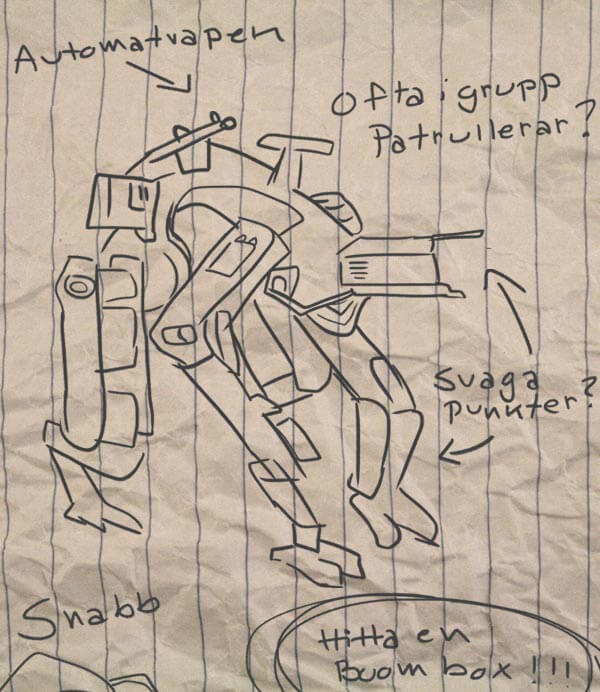 Automatvapen
Ofta i grupp
Patrullerar?
Svaga
punkter?
Snabb
Hitta en
Boom box!!!